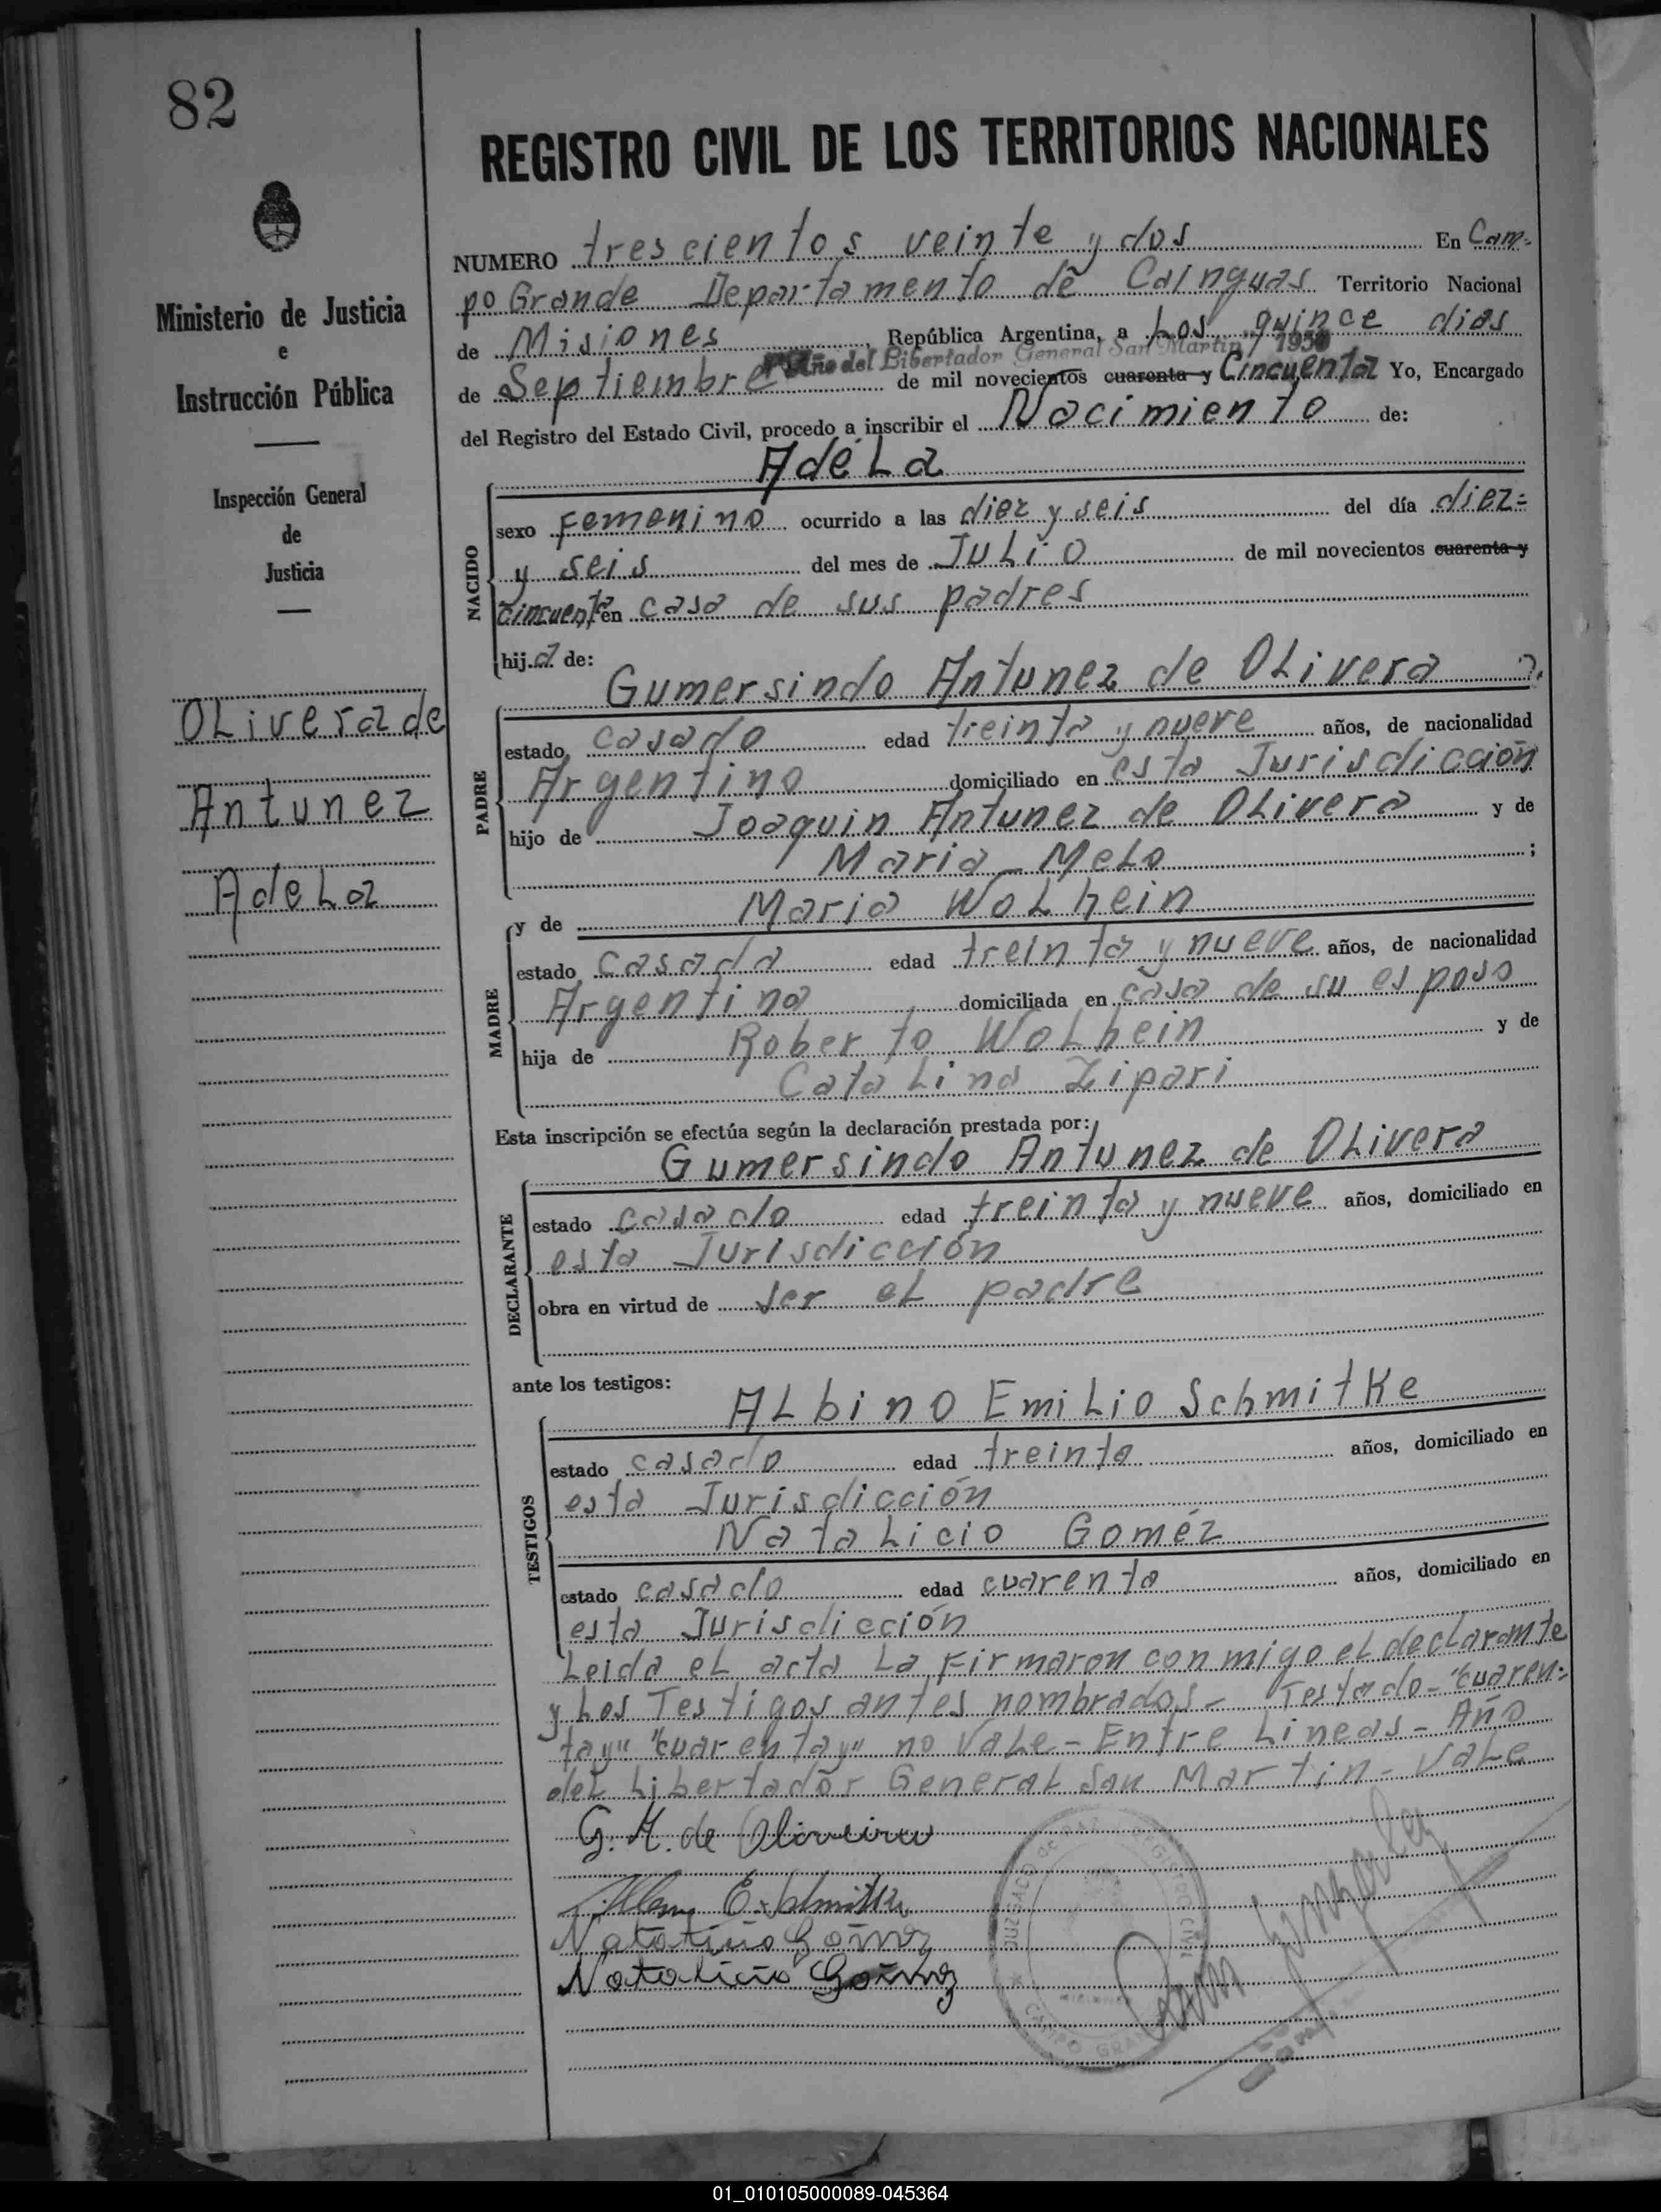 82
REGISTRO CIVIL DE LOS TERRITORIOS NACIONALES
Ministerio de Justicia
e
Instrucción Pública
Inspección General
de
Justicia
OLivera de
Antunez
AdeLa
NUMERO trescientos veinte y dos En Cam-
po Grande Departamento de Cainguas Territorio Nacional
de Misiones, República Argentina, a Los quince dias
Año del Libertador General San Martin, 1950
de Septiembre de mil novecientos cuarenta y Cincuenta Yo, Encargado
del Registro del Estado Civil, procedo a inscribir el Nacimiento de:
AdéLa
NACIDO
sexo Femenino ocurrido a las diez y seis del día diez=
y seis del mes de JuLio de mil novecientos cuarenta y
cincuenta en casa de sus padres
hija de:
Gumersindo Antunez de OLivera
PADRE
estado casado edad treinta y nueve años, de nacionalidad
Argentino domiciliado en esta Jurisdicción
hijo de Joaquin Antunez de OLivera y de
Maria MeLo ;
y de Maria WoLhein
MADRE
estado casada edad treinta y nueve años, de nacionalidad
Argentina domiciliada en casa de su esposo
hija de Roberto WoLhein y de
CataLina Zipari
Esta inscripción se efectúa según la declaración prestada por:
Gumersindo Antunez de OLivera
DECLARANTE
estado casado edad treinta y nueve años, domiciliado en
esta Jurisdicción
obra en virtud de ser eL padre
ante los testigos:
ALbino EmiLio Schmitke
TESTIGOS
estado casado edad treinta años, domiciliado en
esta Jurisdicción
NataLicio Goméz
estado casado edad cuarenta años, domiciliado en
esta Jurisdicción
Leida eL acta La firmaron conmigo eL decLarante
y Los Testigos antes nombrados- Testado- "cuaren=
ta y" "cuarenta y" no VaLe- Entre Lineas- Año
deL Libertador GeneraL San Martin- VaLe
G. A. de Oliveira
E. Schmitke
Natalicio Gomez
Natalicio Gomez
JUZGADO de PAZ REGISTRO CIVIL
CAMPO GRANDE
01_010105000089-045364